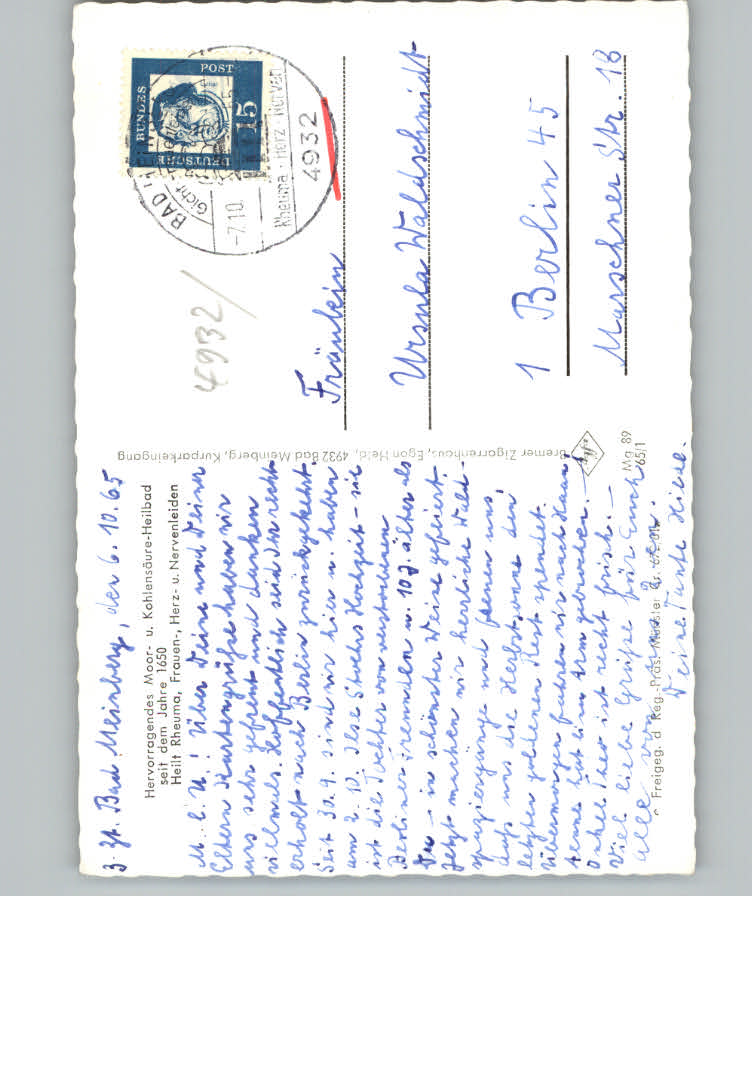 z. Zt. Bad Meinberg, den 6.10.65
Hervorragendes Moor- u. Kohlensäure-Heilbad
seit dem Jahre 1650
Heilt Rheuma, Frauen-, Herz- u. Nervenleiden
M. l. U.! Über Deine und Deiner
Eltern Kartengrüße haben wir
uns sehr gefreut und danken
vielmals. Hoffentlich seid Ihr recht
erholt nach Berlin zurückgekehrt.
Seit 30.9. sind wir hier u. haben
am 2.10. Ilse Hochzeit – sie
ist die Tochter von verstorbenen
Berliner Freunden u. 10 J. älter als
Du – in schönster Weise gefeiert.
Jetzt machen wir herrliche Wald-
spaziergänge und freuen uns,
daß uns die Herbstsonne den
letzten goldenen Rest spendet.
Übermorgen fahren wir nach Haus,
Henne hat d'n Arm gebrochen. –
Onkel Theo ist recht frisch. –
Viel liebe Grüße für Euch
alle von
Deine Tante Hilde.
Freigeg. d Reg.-Präs. Münster Nr.
Bremer Zigarrenhaus, Egon Held, 4932 Bad Meinberg, Kurparkeingang
Agfa
Mg 89
65/1
DEUTSCHE
BUNDES
POST
15
BAD MEINB
Gicht
-7.10.
Rheuma · Herz · Nerven
4932
4932/
Fräulein
Ursula Waldschmidt
1 Berlin 45
Marschner Str. 18